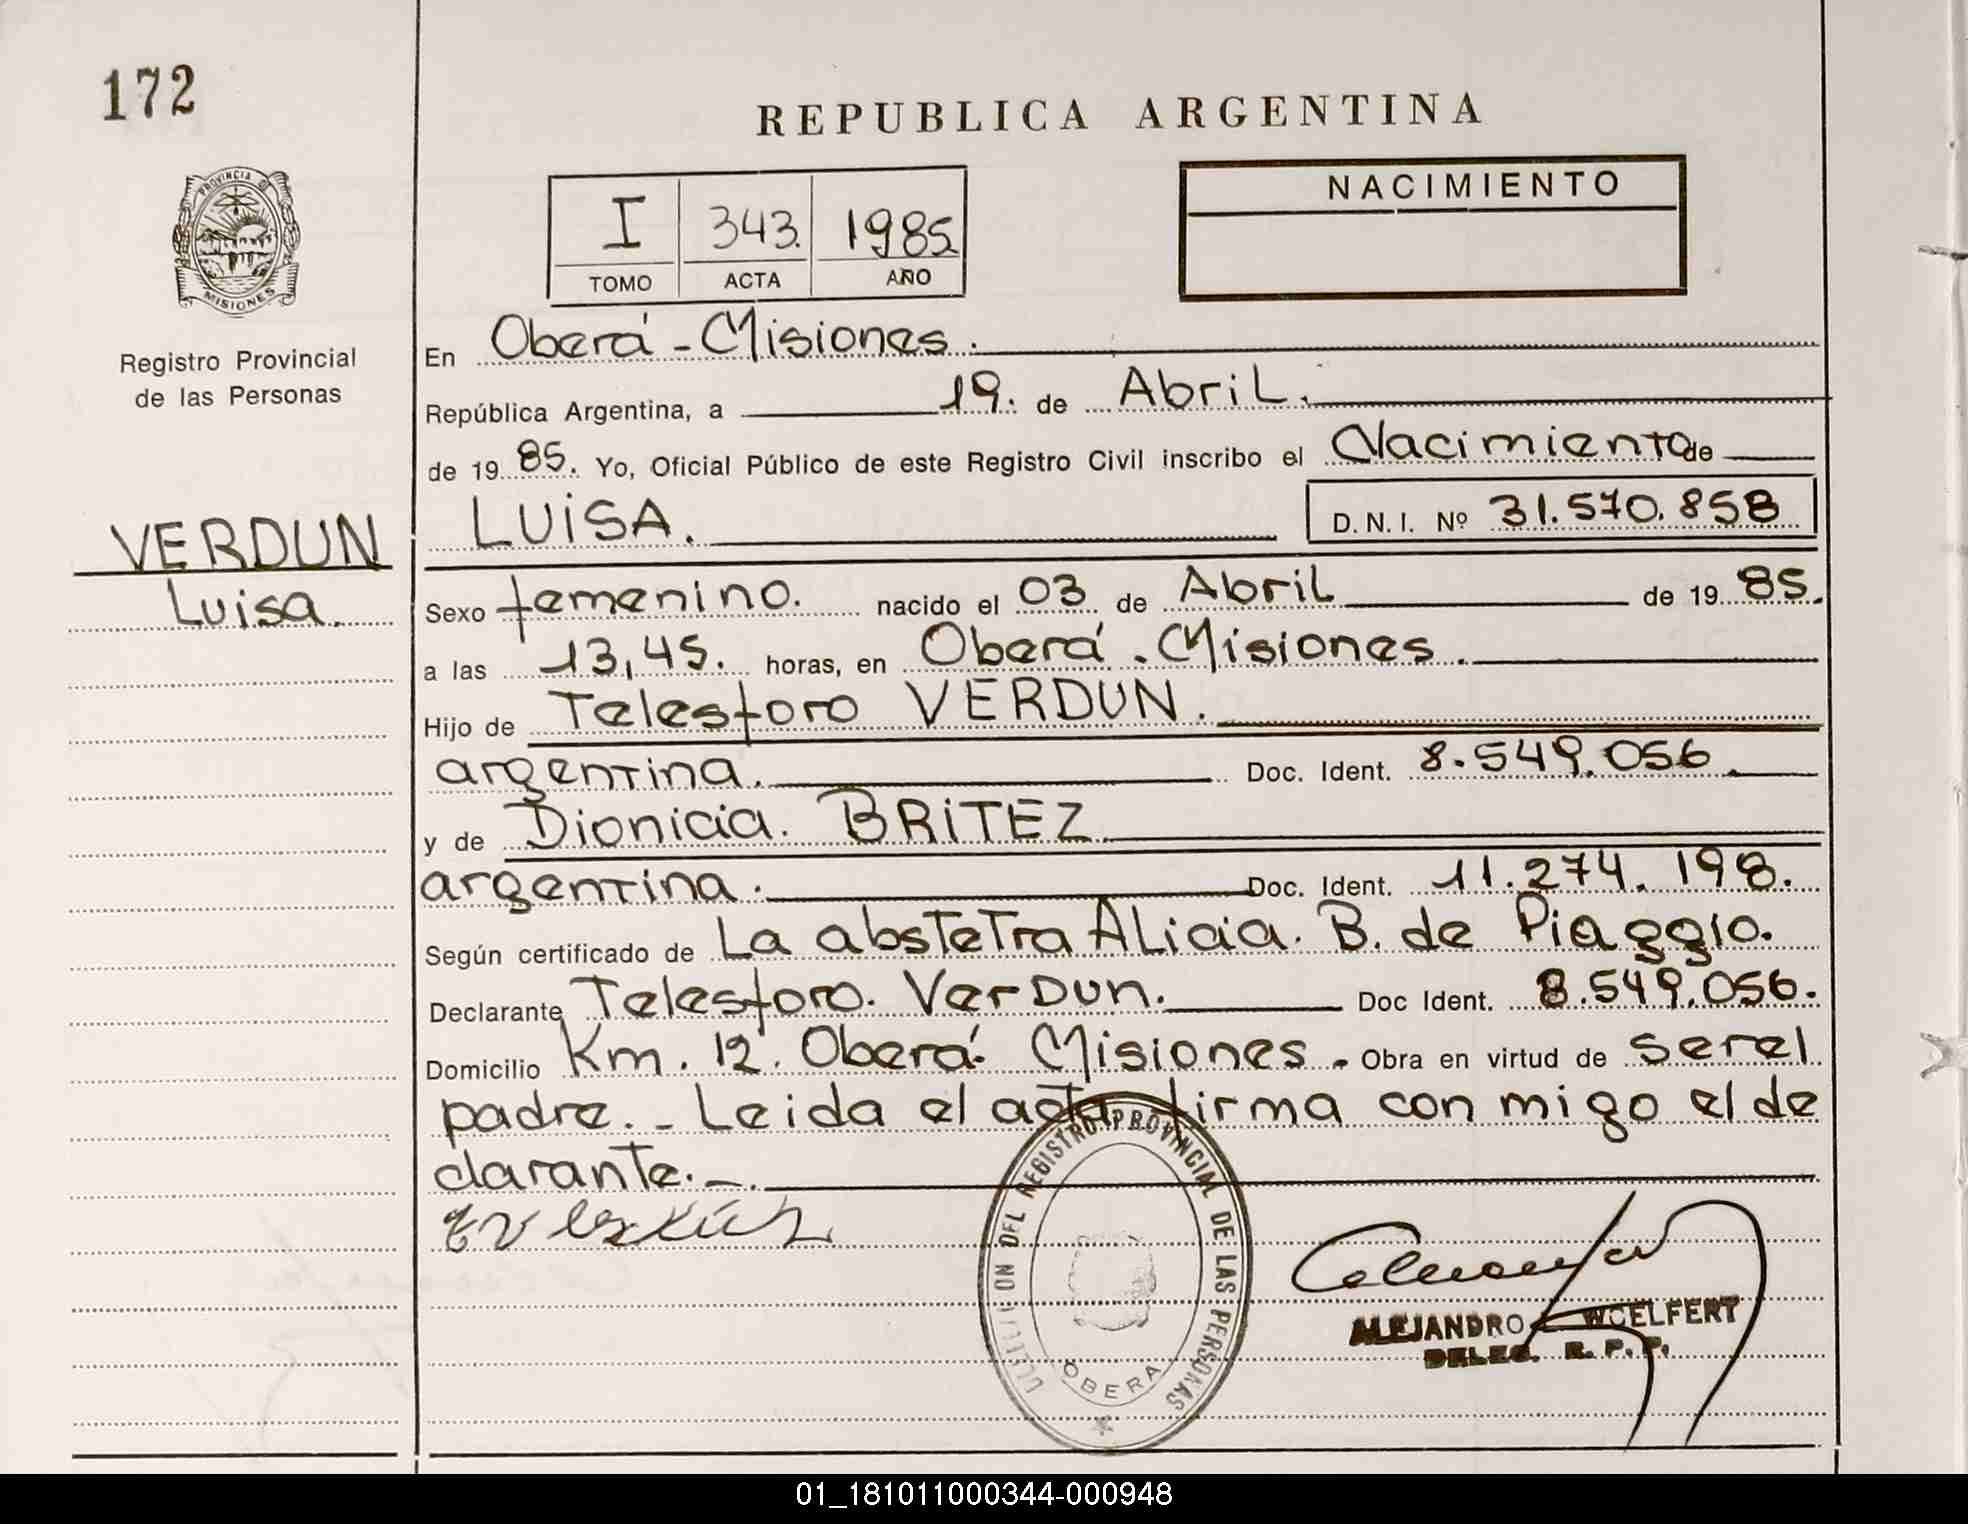 172
REPUBLICA ARGENTINA
PROVINCIA D
MISIONES
I 343. 1985
TOMO ACTA AÑO
NACIMIENTO
Registro Provincial
de las Personas
En Oberá - Misiones.
República Argentina, a 19. de Abril.
de 19 85. Yo, Oficial Público de este Registro Civil inscribo el Nacimiento de
LUISA.
D. N. I. Nº 31.570.858
VERDUN
Luisa.
Sexo femenino. nacido el 03 de Abril de 19 85.
a las 13,45. horas, en Oberá. Misiones.
Hijo de Telesforo VERDUN.
argentina. Doc. Ident. 8.549.056
y de Dionicia. BRITEZ
argentina. Doc. Ident. 11.274.198.
Según certificado de La abstetra Alicia. B. de Piaggio.
Declarante Telesforo. Verdun. Doc Ident. 8.549.056.
Domicilio Km. 12. Oberá. Misiones. Obra en virtud de ser el
padre._ Leida el acta firma con migo el de
clarante._.
DEL REGISTRO PROVINCIAL DE LAS PERSONAS
OBERA
ALEJANDRO WOELFERT
DELEG. R. P. P.
01_181011000344-000948